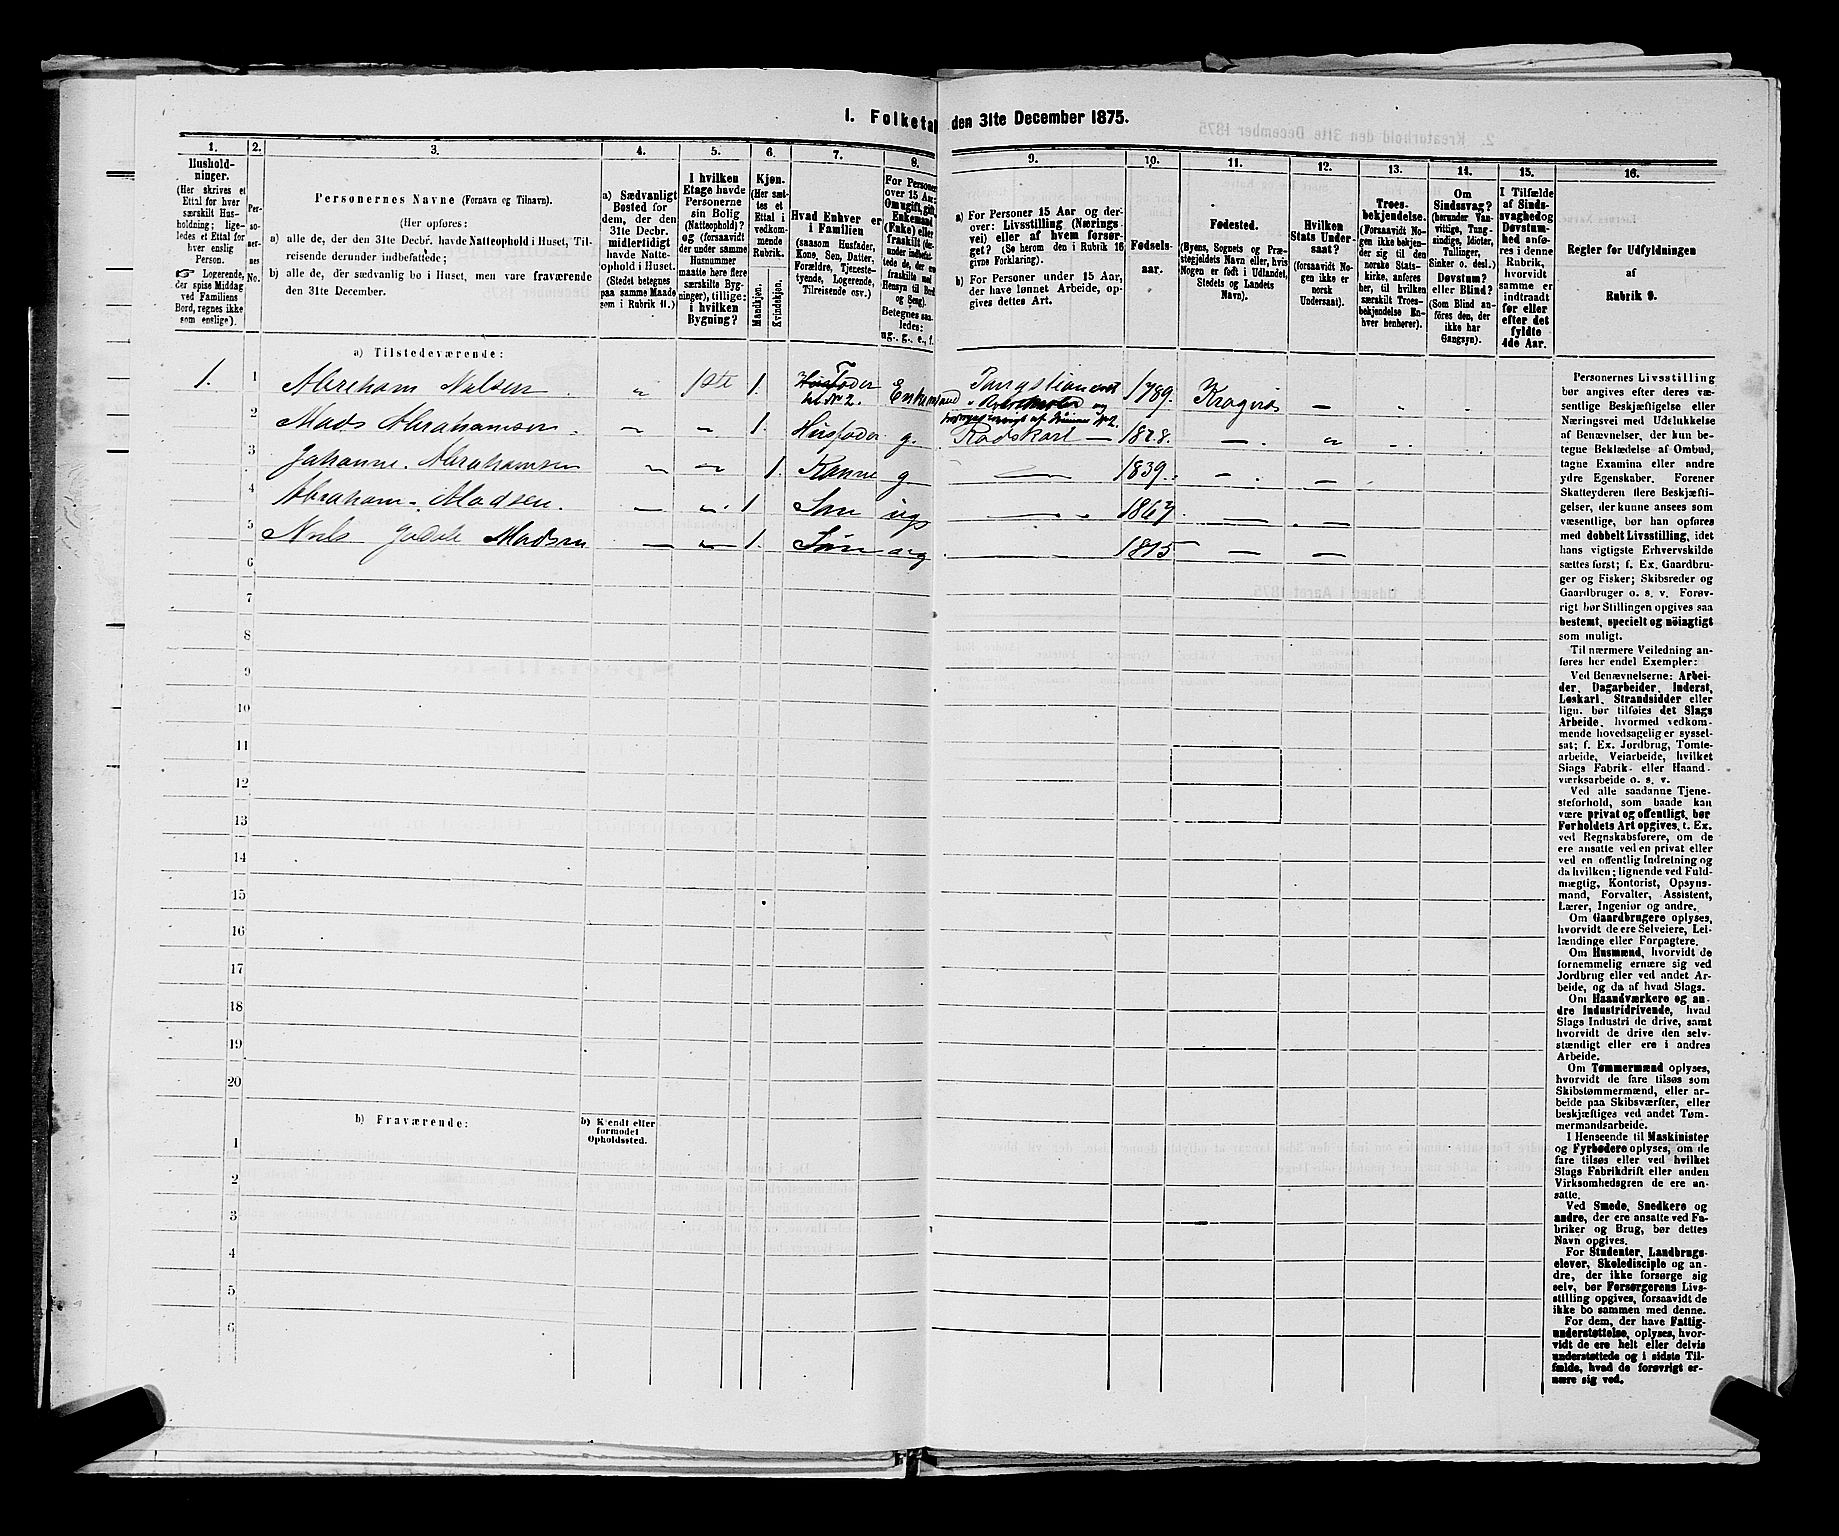 I. Folketal den 31te December 1875.
1. 2. 3. 4. 5. 6. 7. 8. 9. 10. 11. 12. 13. 14. 15. 16.
Hushold-
ninger.
(Her skrives et
Ettal for hver
særskilt Hus-
holdning; lige-
ledes et Ettal for
hver enslig
Person.
Logerende,
der spise Middag
ved Familiens
Bord, regnes ikke
som enslige).
Per-
so-
ner-
nes
No.
Personernes Navne (Fornavn og Tilnavn).
(Her opføres:
a) alle de, der den 31te Decbr. havde Natteophold i Huset, Til-
reisende derunder indbefattede;
b) alle de, der sædvanlig bo i Huset, men vare fraværende
den 31te December.
a) Sædvanligt
Bosted for
dem, der den
31te Decbr.
midlertidigt
havde Natte-
ophold i Huset.
(Stedet betegnes
paa samme Maade
som i Rubrik 11.)
I hvilken
Etage havde
Personerne
sin Bolig
(Natteophold)?
og (forsaavidt
der under samme
Husnummer
maatte høre flere
særskilte Byg-
ninger), tillige:
i hvilken
Bygning?
Kjøn.
(Her sæt-
tes et
Ettal i
vedkom-
mende
Rubrik.
Mandkjøn.
Kvindekjøn.
Hvad Enhver er
i Familien
(saasom Husfader,
Kone, Søn, Datter,
Forældre, Tjeneste-
tyende, Logerende,
Tilreisende osv.)
For Personer
over 15 Aar:
Om ugift, gift,
Enkemand
(Enke) eller
fraskilt (der-
under indbefat-
tede de, der ere
fraskilte med
Hensyn til Bord
og Seng).
Betegnes saa-
ledes:
ug., g., e., f.
a) For Personer 15 Aar og der-
over: Livsstilling (Nærings-
vei) eller af hvem forsør-
get? (Se herom den i Rubrik 16
givne Forklaring).
b) For Personer under 15 Aar,
der have lønnet Arbeide, op-
gives dettes Art.
Fødsels-
aar.
Fødested.
(Byens, Sognets og Præ-
stegjeldets Navn eller, hvis
Nogen er født i Udlandet,
Stedets og Landets
Navn).
Hvilken
Stats Under-
saat?
(forsaavidt No-
gen ikke er
norsk
Undersaat).
Troes-
bekjendelse.
(Forsaavidt No-
gen ikke bekjen-
der sig til den
norske Stats-
kirke, anføres
her, til hvilken
særskilt Troes-
bekjendelse En-
hver henhører).
Om
Sindssvag?
(herunder Van-
vittige, Tung-
sindige, Idioter,
Tullinger,
Sinker o. desl.)
Døvstum?
eller Blind?
(Som Blind an-
føres den, der
ikke har
Gangsyn).
I Tilfælde
af Sinds-
svaghed og
Døvstum-
hed anfø-
res i denne
Rubrik,
hvorvidt
samme er
indtraadt
før eller
efter det
fyldte
4de Aar.
Regler for Udfyldningen
af
Rubrik 9.
a) Tilstedeværende:
1. 1 Abreham Nielsen 1ste 1. Enkemand 1789. Kragerø
2 Mads Abrahamsen 1. Husfader g. 1828.
3 Johanne Abrahamsen 1. Kone g 1839.
4 Abraham Madsen. 1 Søn ug 1867
5 Niels Madsen 1. Søn ug 1875
6
7
8
9
10
11
12
13
14
15
16
17
18
19
20
b) Fraværende:
b) Kjendt eller
formodet
Opholdssted.
1
2
3
4
5
6
Personernes Livsstilling
bør angives efter deres væ-
sentlige Beskjæftigelse eller
Næringsvei med Udelukkelse
af Benævnelser, der kun be-
tegne Beklædelse af Ombud,
tagne Examina eller andre
ydre Egenskaber. Forener
Skatteyderen flere Beskjæfti-
gelser, der kunne ansees som
væsentlige, bør han opføres
med dobbelt Livsstilling, idet
hans vigtigste Erhvervskilde
sættes først; f. Ex. Gaardbru-
ger og Fisker; Skibsreder og
Gaardbruger o. s. v. Forøv-
rigt bør Stillingen opgives saa
bestemt, specielt og nöiagtigt
som muligt.
Til nærmere Veiledning an-
føres her endel Exempler:
Ved Benævnelserne: Arbei-
der, Dagarbeider, Inderst,
Løskarl, Strandsidder eller
lign. bør tilføies det Slags
Arbeide, hvormed vedkom-
mende hovedsagelig er syssel-
sat; f. Ex. Jordbrug, Tomte-
arbeide, Veiarbeide, hvilket
Slags Fabrik- eller Haand-
værksarbeide o. s. v.
Ved alle saadanne Tjene-
steforhold, som baade kan
være privat og offentligt, bør
Forholdets Art opgives, t. Ex.
ved Regnskabsførere, om de
ere ansatte ved en privat eller
ved en offentlig Indretning og
da hvilken; lignende ved Fuld-
mægtig, Kontorist, Opsyns-
mand, Forvalter, Assistent,
Lærer, Ingeniør og andre.
Om Gaardbrugere oplyses,
hvorvidt de ere Selveiere, Lei-
lændinge eller Forpagtere.
Om Husmænd, hvorvidt de
fornemmelig ernære sig ved
Jordbrug eller ved andet Ar-
beide, og da af hvad Slags.
Om Haandværkere og an-
dre Industridrivende, hvad
Slags Industri de drive, samt
hvorvidt de drive den selv-
stændigt eller ere i andres
Arbeide.
Om Tømmermænd oplyses,
hvorvidt de fare tilsøs som
Skibstømmermænd, eller ar-
beide paa Skibsværfter, eller
beskjæftiges ved andet Tøm-
mermandsarbeide.
I Henseende til Maskinister
og Fyrbødere oplyses, om de
fare tilsøs eller ved hvilket
Slags Fabrikdrift eller anden
Virksomhedsgren de ere an-
satte.
Ved Smede, Snedkere og
andre, der ere ansatte ved Fa-
briker og Brug, bør dettes
Navn opgives.
For Studenter, Landbrugs-
elever, Skoledisciple og an-
dre, der ikke forsørge sig
selv, bør Forsørgerens Livs-
stilling opgives, forsaavidt de
ikke bo sammen med denne.
For dem, der have Fattig-
understøttelse, oplyses, hvor-
vidt de ere helt eller delvis
understøttede og i sidste Til-
fælde, hvad de forøvrigt er-
nære sig ved.